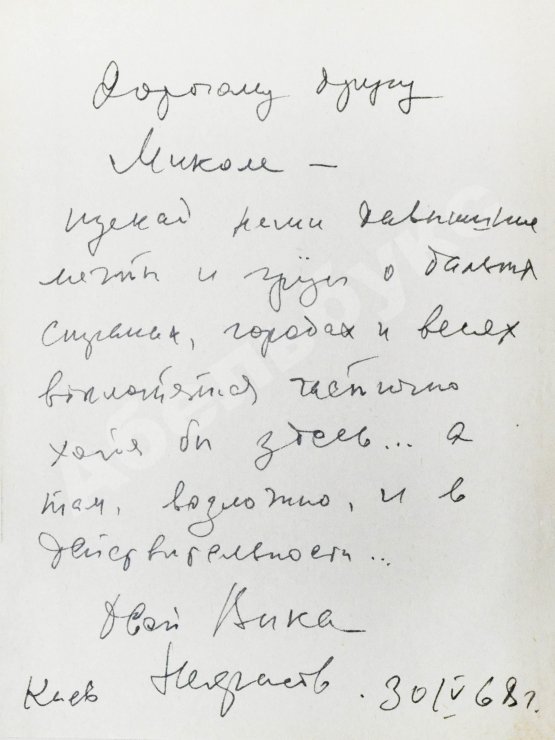 Дорогому другу
Миколе —
пускай наши давнишние
мечты и грёзы о дальних
странах, городах и весях
воплотятся частично
хотя бы здесь... а
там, возможно, и в
действительности...
Твой Вика
Некрасов
Киев 30/V 68 г.